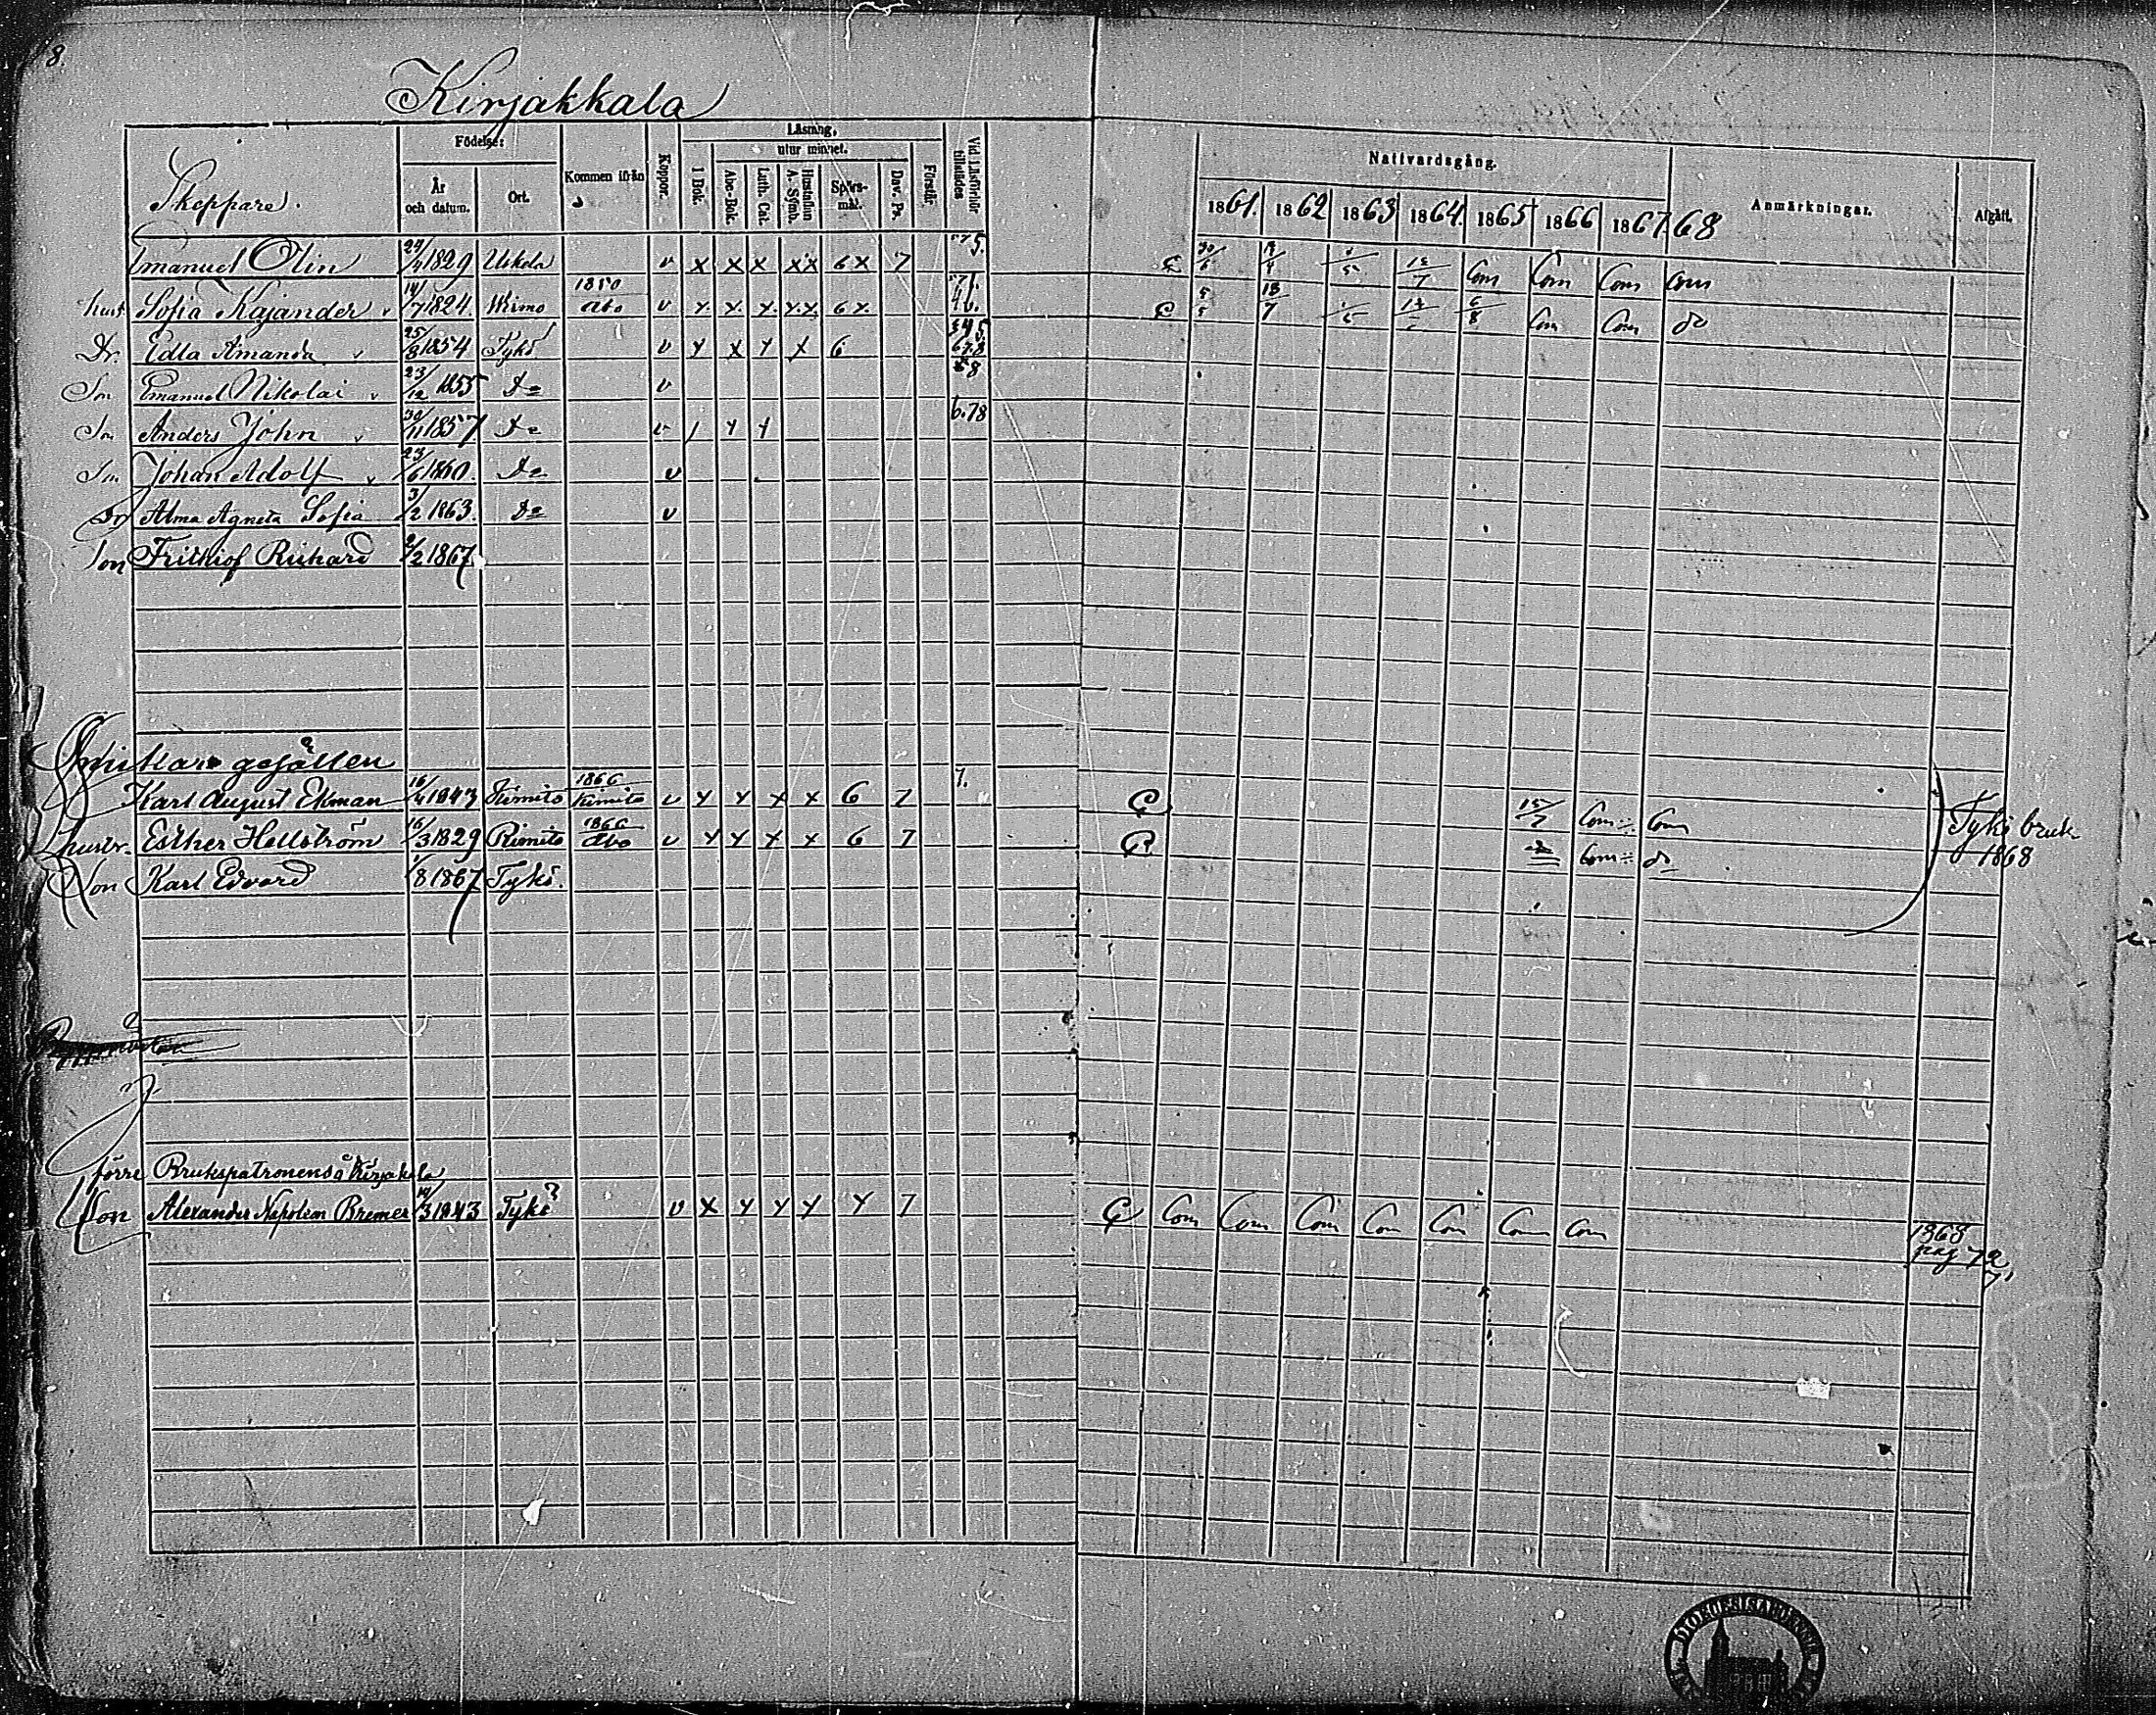 8.
Kirjakkala
Skeppare.
Födelse:
År och datum.
Ort.
Kommen ifrån
Koppor.
Läsning,
utur minnet.
1 Bok.
Abc-Bok.
Luth. Cat.
Hustaflan A. Symb.
Spörs-mål.
Dav. Ps.
Förstår
Vid Läsförhör tillstädes
Nattvardsgång.
1861. 1862 1863 1864. 1865 1866 1867 68
Anmärkningar.
Afgått.
Emanuel Olin 24/4 1829 Uskela v x x x x x 6 x 7 Com Com Com Com
hust. Sofia Kajander v 14/7 1824. Wirmo 1850 Abo v x. x. x. x. x. 6 x. 6/8 Com Com do
Dr. Edla Amanda v 25/8 1854 Tykö v x x x x 6
Son Emanuel Nikolai v 23/12 1855 Do v
Son Anders John v 30/11 1857 Do v 6.78
Son Johan Adolf v 23/6 1860. Do v
Dr Alma Agneta Sofia 3/2 1863. Do v
Son Frithiof Rickard 2/2 1867
gesällen
Karl August Ekman 16/4 1843 Kimito 1866 Kimito v x x x x 6 7 7. 15/7 Com Com
hustr. Esther Hellström 16/3 1829 Rimito 1866 Abo v x x x x 6 7 Com do
Son Karl Edvard 1/8 1867 Tykö.
Tykö bruk
1868
förre Brukspatronens å Kirjakala
Son Alexander Napoleon Bremer 14/3 1843 Tykö v x x x x x 7 Com Com Com Com Com Com Com
1868
pag 72